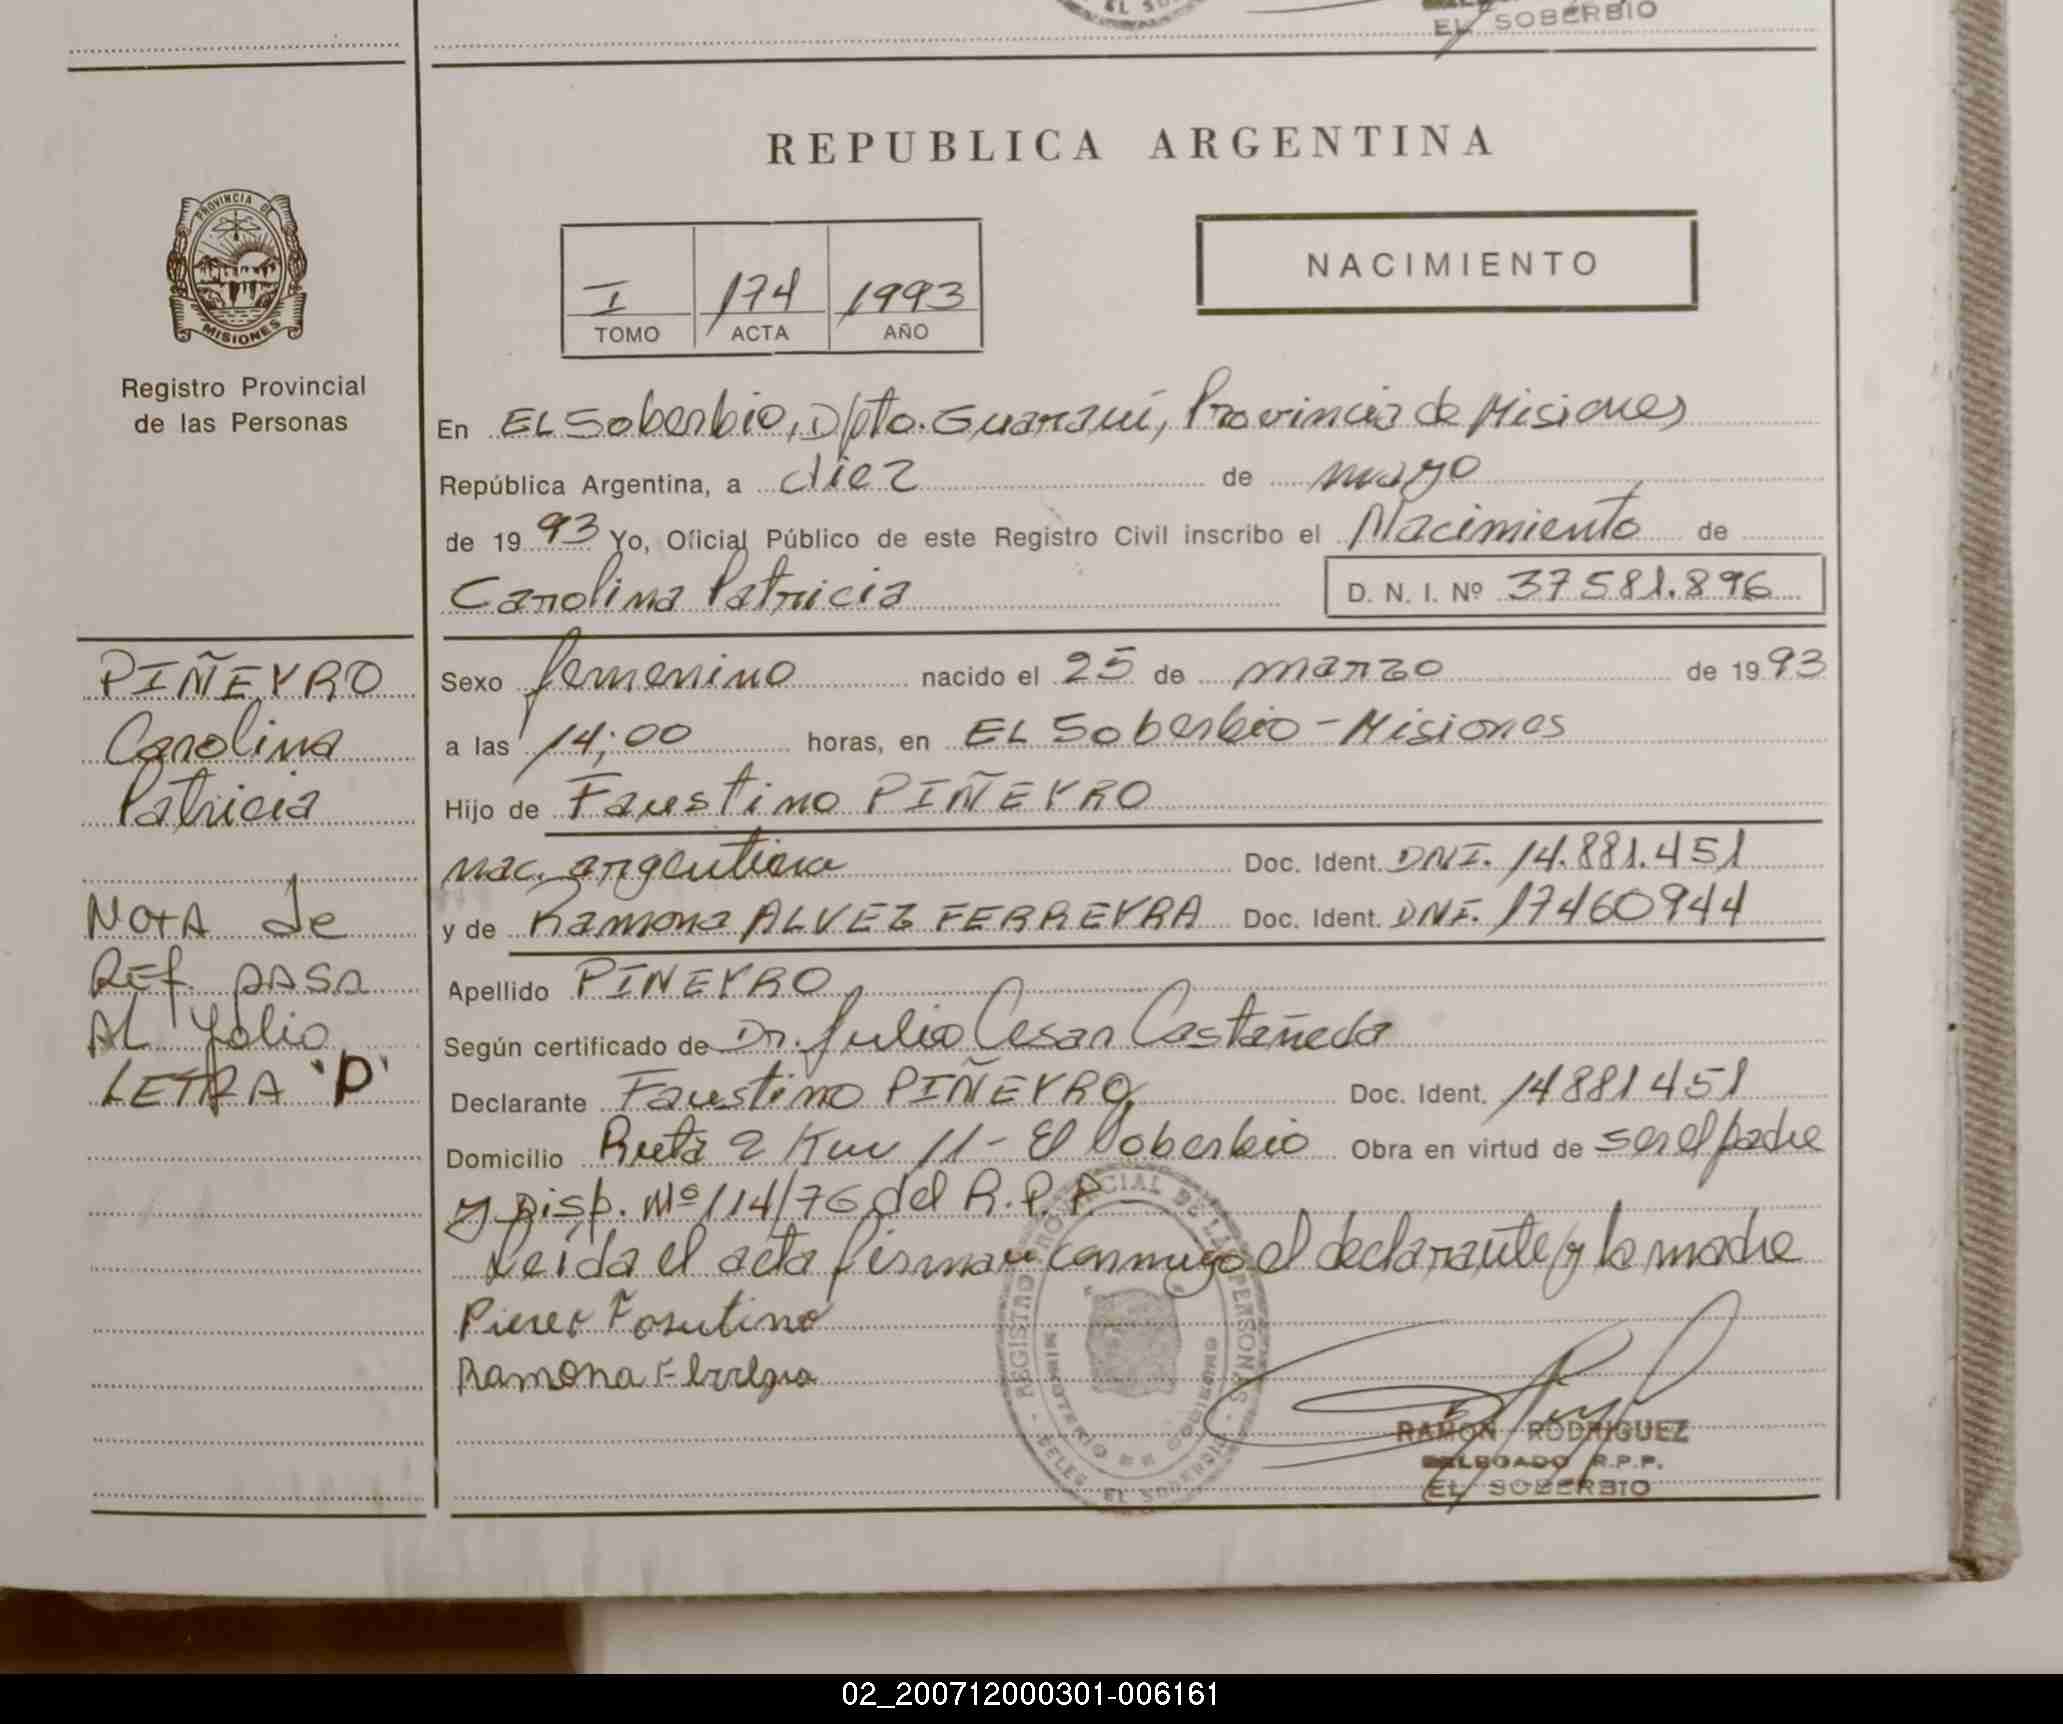 EL SOBERBIO
REPUBLICA ARGENTINA
PROVINCIA DE
MISIONES
Registro Provincial
de las Personas
I 174 1993
TOMO ACTA AÑO
NACIMIENTO
En EL Soberbio, D/pto. Guaraní, Provincia de Misiones
República Argentina, a diez de mayo
de 1993 Yo, Oficial Público de este Registro Civil inscribo el Nacimiento de
Carolina Patricia D. N. I. Nº 37581.896
PIÑEYRO
Carolina
Patricia
NOTA de
REf. PASA
AL folio
LETRA 'D'
Sexo femenino nacido el 25 de marzo de 1993
a las 14:00 horas, en EL Soberbio - Misiones
Hijo de Faustino PIÑEYRO
nac. argentina Doc. Ident. DNI. 14.881.451
y de Ramona ALVEZ FERREYRA Doc. Ident. DNI. 17460944
Apellido PIÑEYRO
Según certificado de Dr. Julio Cesar Castañeda
Declarante Faustino PIÑEYRO Doc. Ident. 14881451
Domicilio Ruta 2 Km 11 - El Soberbio Obra en virtud de ser el padre
y Disp. Nº 114/76 del R.P.P.
Leída el acta firman conmigo el declarante y la madre
Ramona
REGISTRO PROVINCIAL DE LAS PERSONAS
MINISTERIO DE GOBIERNO
DELEG. EL SOBERBIO
RAMON RODRIGUEZ
DELEGADO R.P.P.
EL SOBERBIO
02_200712000301-006161